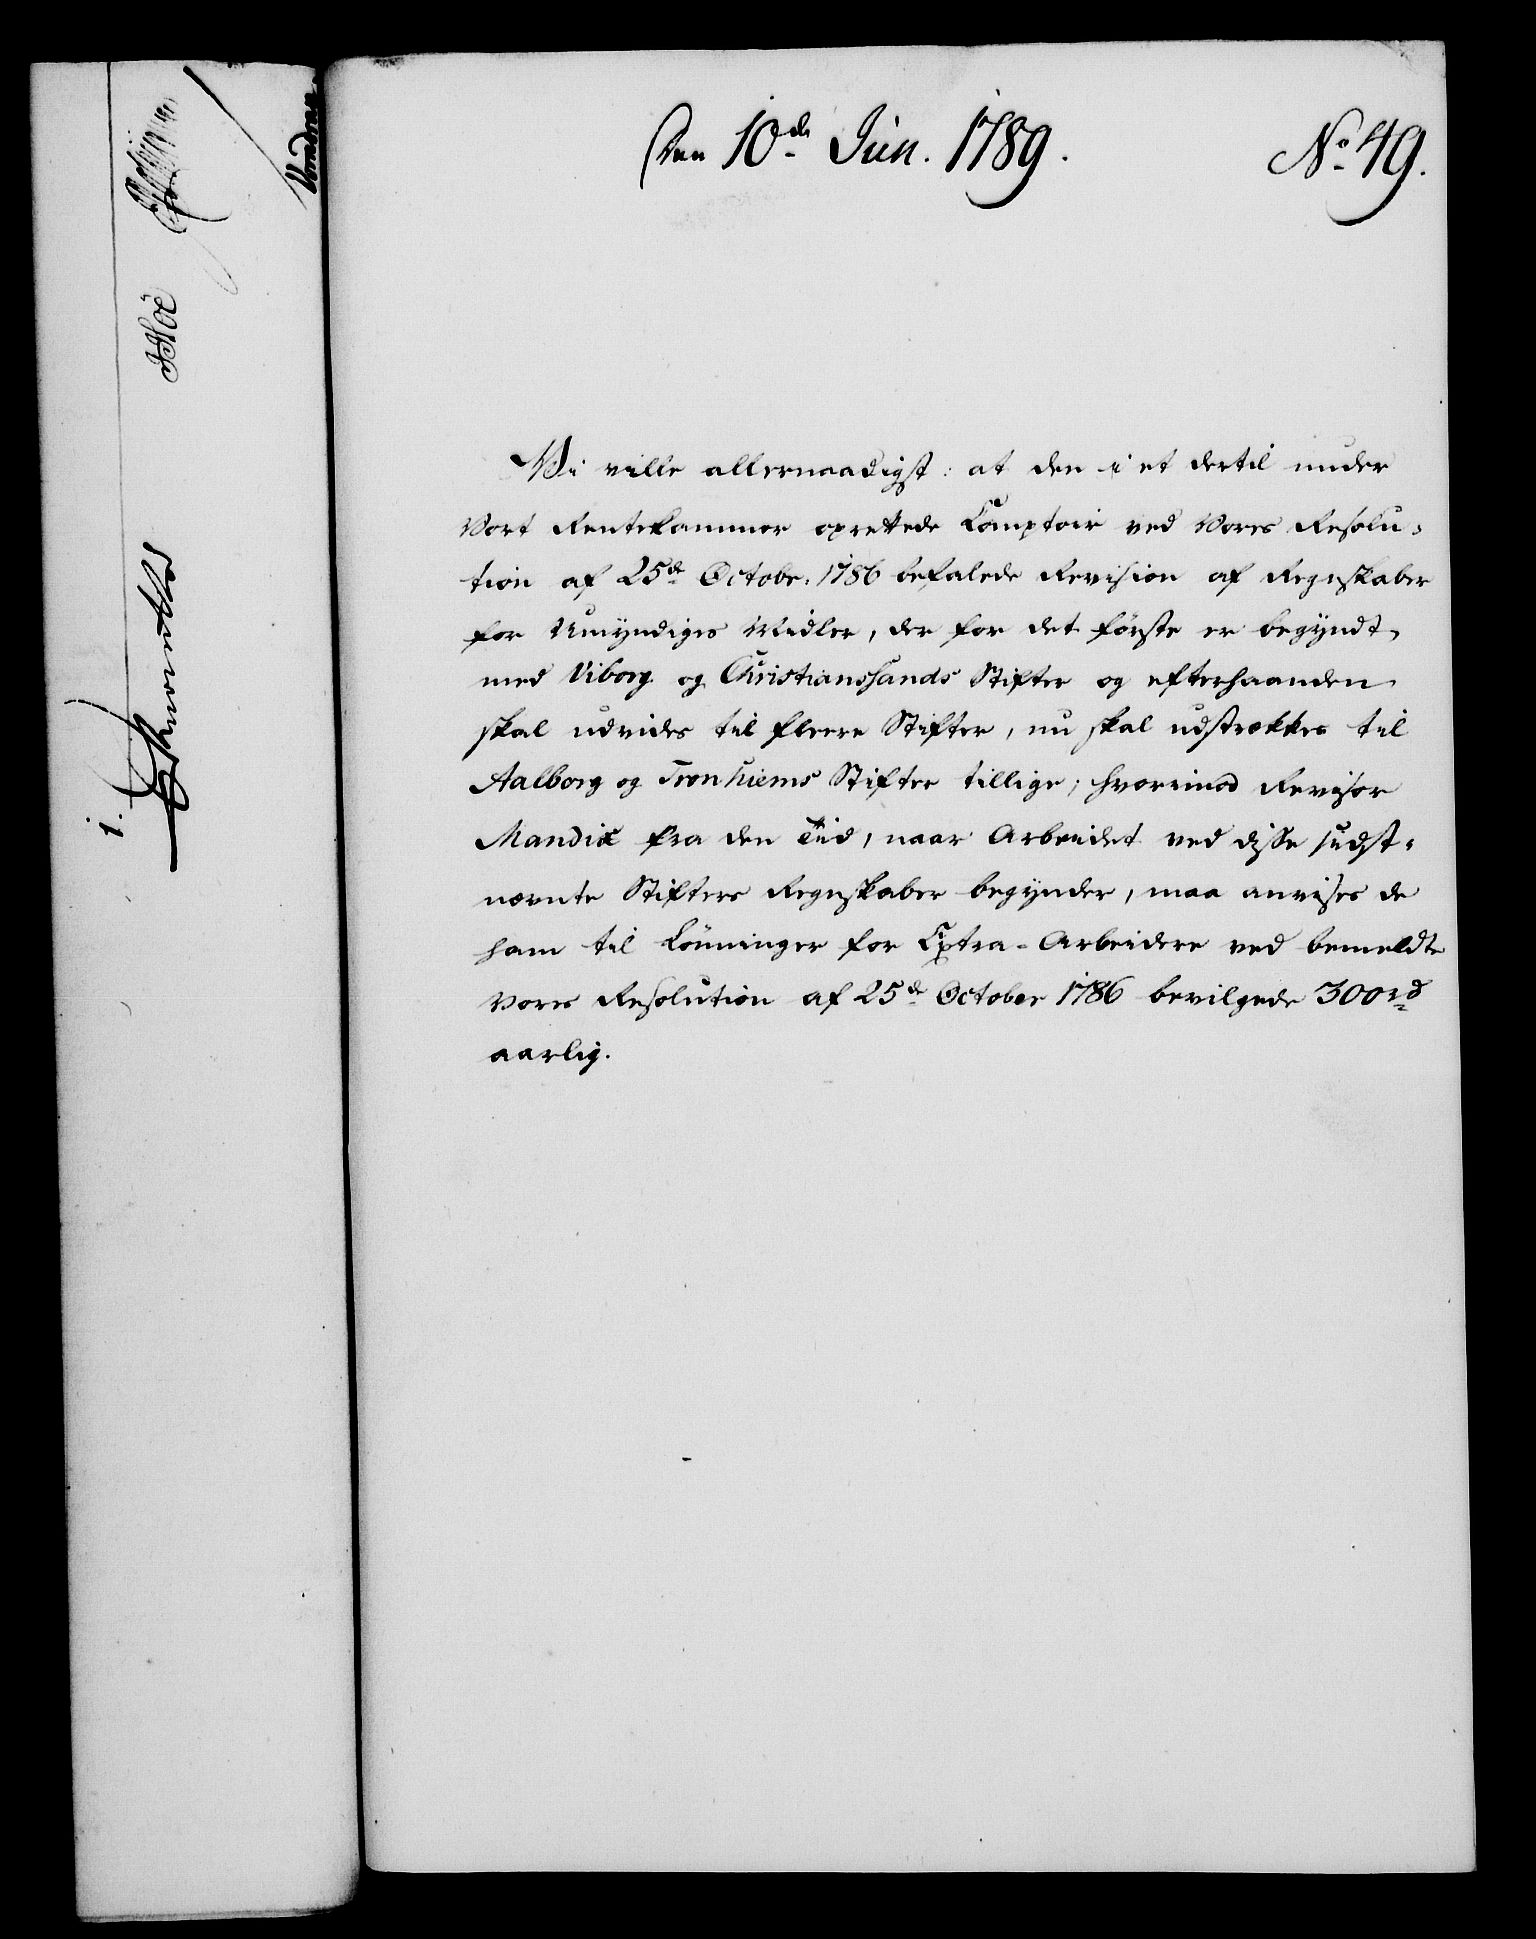 Den 10de Jun. 1789.
No. 49.
Vi ville allernaadigst: at den i et dertil under
Vort Rentekammer oprettede Comptoir ved Vores Resolu-
tion af 25de Octobr. 1786 befalede Revision af Regnskaber
for Umyndiges Midler, der for det förste er begyndt
med Viborg og Christianssands Stifter og efterhaanden
skal udvides til fleere Stifter, nu skal udstrækkes til
Aalborg og Tronhiems Stifter tillige; hvorimod Revisor
Mandix fra den Tiid, naar Arbeidet ved disse sidst-
nævnte Stifters Regnskaber begynder, maa anvises de
ham til Lönninger for Extra-Arbeidere ved bemeldte
Vores Resolution af 25de October 1786 bevilgede 300 rd
aarlig.